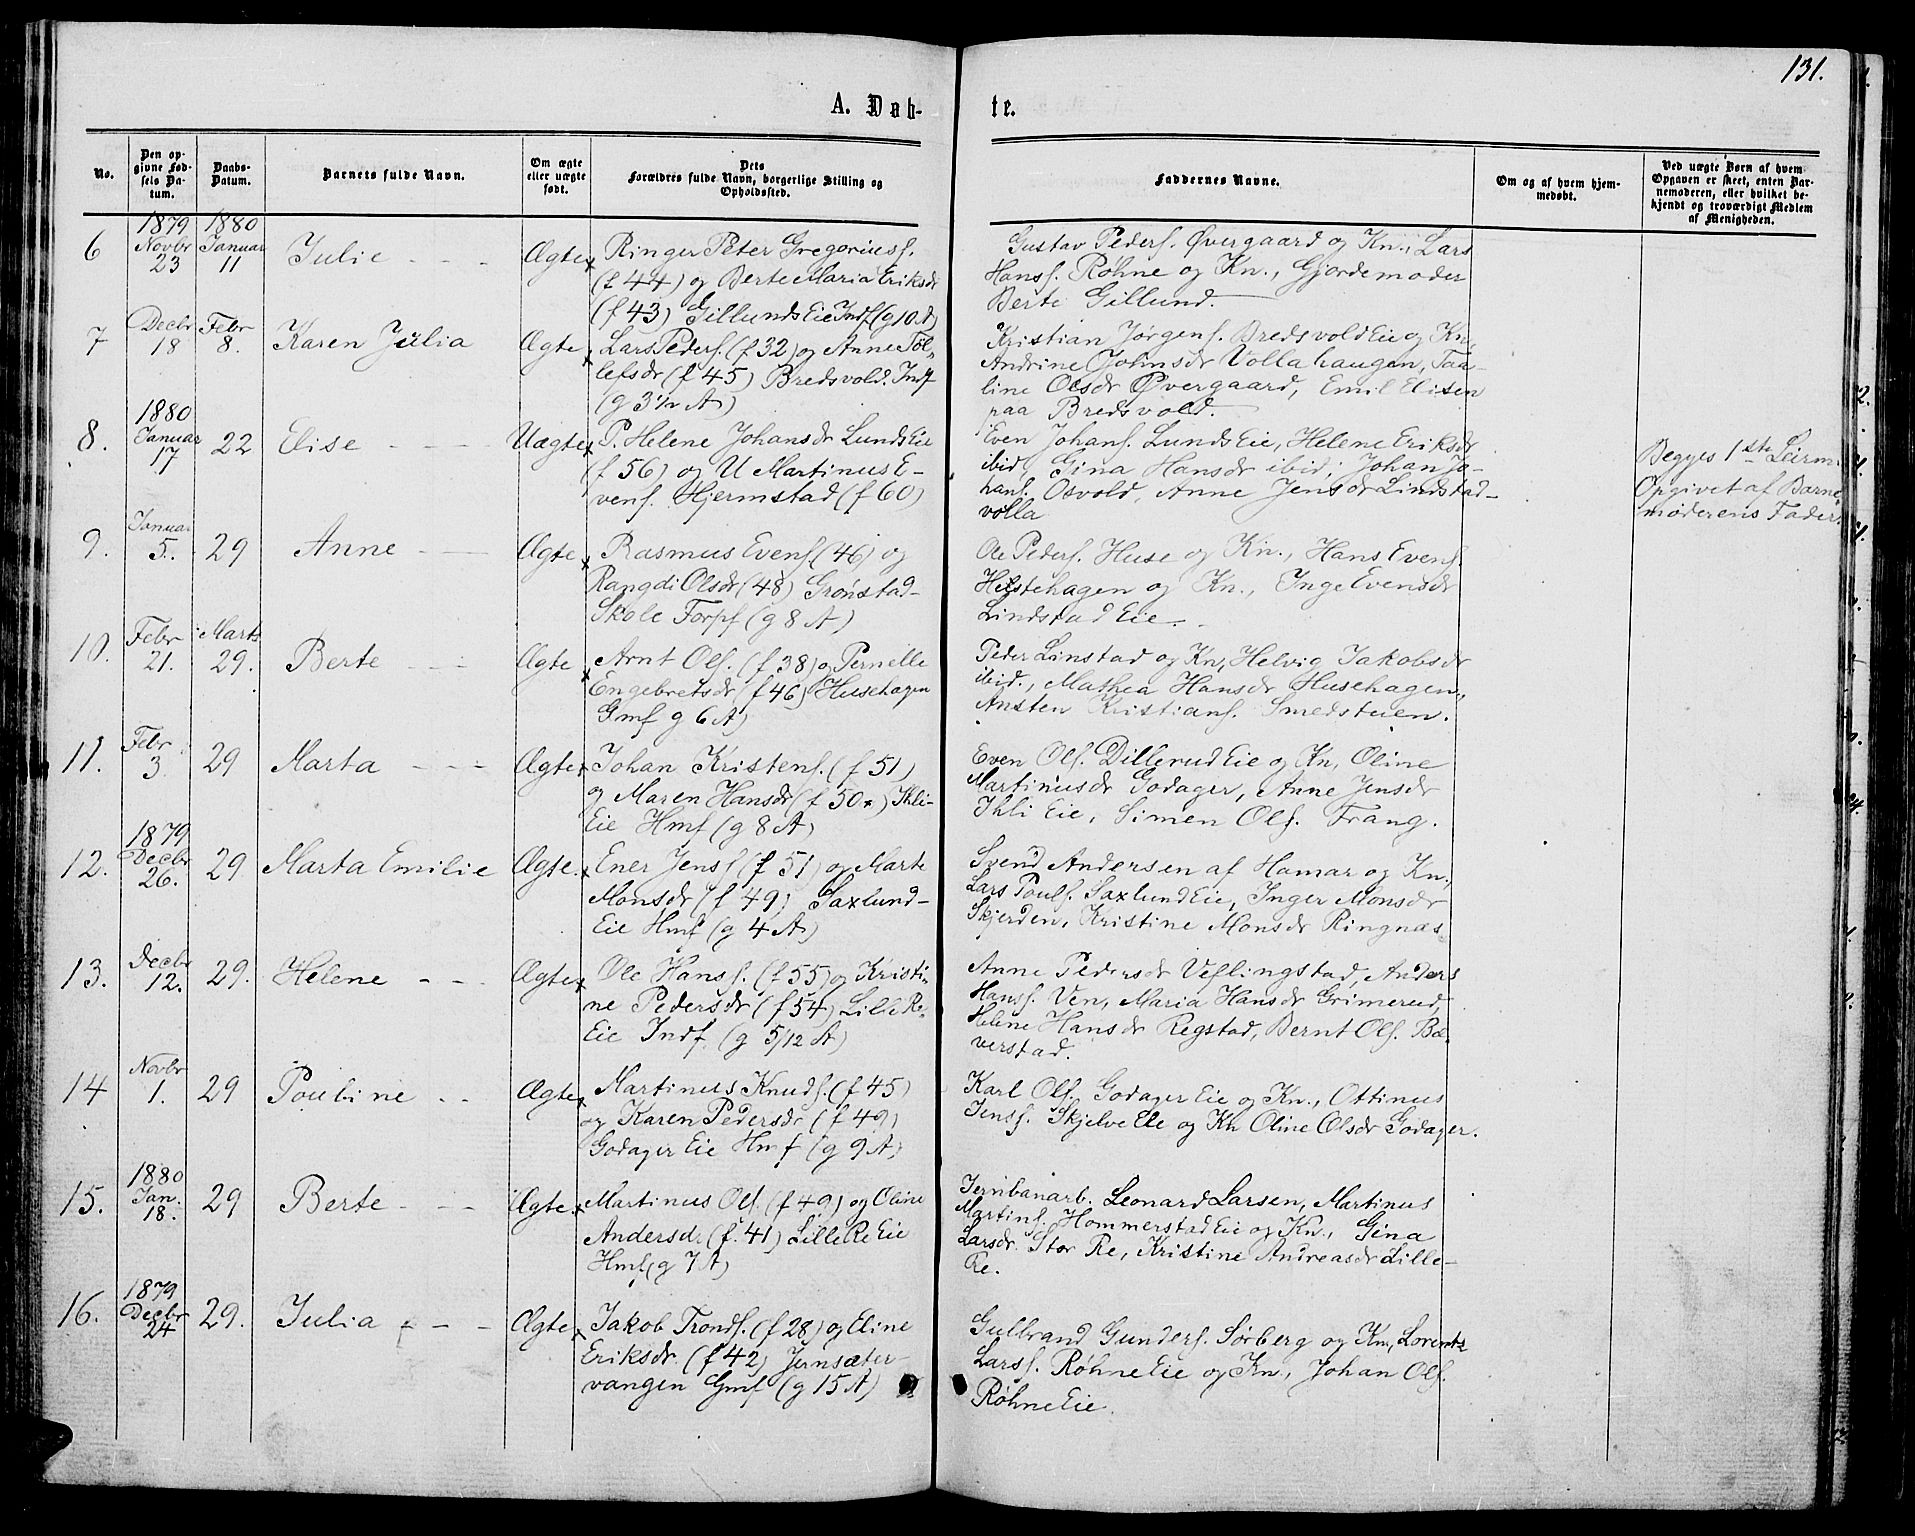 131.
A. Døb-
te.
No.
Den op-
givne Fød-
sels Da-
tum.
Daabs-
Datum.
Barnets fulde Navn.
Om ægte
eller uægte
født.
Dets
Forældres fulde Navn, borgerlige Stilling og
Opholdssted.
Faddernes Navne.
Om og af hvem hjem-
medøbt.
Ved uægte Børn af hvem
Opgaven er skeet, enten Bar-
nemoderen, eller hvilket be-
kjendt og troværdigt Medlem
af Menigheden.
6
1879
Novbr
23
1880
Januar
11
Julie
Ægte
Ringer Peter Gregoriusf.
(f 44) og Berte Maria Eriksdr
(f 43) Gillunds Eie Indf (g 10 A)
Gustav Pedersf. Øvergaard og Kn., Lars
Hansf. Røhne og Kn., Gjordemoder
Berte Gillund.
7
Decbr
18
Febr
8.
Karen Julia
Ægte
Lars Pedersf. (f 32) og Anne Tol-
lefsdr (f 45) Bredsvold. Indf
(g 3½ A)
Kristian Jørgensf. Bredsvold Eie og Kn,
Andrine Johnsdr Vollahaugen, Taa-
line Olsdr Øvergaard, Emil Elisen
paa Bredsvold.
8.
1880
Januar
17
22
Elise
Uægte
P. Helene Johansdr Lunds Eie
(f 56) og U Martinus E-
vensf. Hjermstad (f 60)
Even Johansf. Lunds Eie, Helene Eriksdr
ibid, Gina Hansdr ibid, Johan Jo-
hansf. Osvold, Anne Jensdr Lindstad-
volla
Begges 1ste Leirm.
Opgivet af Barne-
moderens Fader.
9.
Januar
5.
29
Anne
Ægte
Rasmus Evensf. (46) og
Rangdi Olsdr (48) Grønstad-
Skole Forpf (g 8 A)
Ole Pedersf. Huse og Kn., Hans Evensf.
Hestehagen og Kn., Inge Evensdr
Lindstad Eie.
10.
Febr
21.
Marts
29.
Berte
Ægte
Arnt Olsf. (f 38) og Pernelle
Engebretsdr (f 46) Husehagen
Gmf g 6 A)
Peder Linstad og Kn, Helvig Jakobsdr
ibid., Mathea Hansdr Husehagen,
Ansten Kristiansf. Smedstuen.
11.
Febr
3.
29
Marta
Ægte
Johan Kristensf. (f 51)
og Maren Hansdr (f 50) Ihli-
Eie Hmf (g 8 A)
Even Olsf. Dillerud Eie og Kn, Oline
Martinusdr Godager, Anne Jensdr
Ihli Eie, Simen Olsf. Frang.
12.
1879
Decbr
26.
29
Marta Emilie
Ægte.
Ener Jensf (f 51) og Marte
Monsdr (f 49) Saxlund-
Eie Hmf (g 4 A)
Svend Andersen af Hamar og Kn.,
Lars Poulsf. Saxlund Eie, Inger Monsdr
Skjerden, Kristine Monsdr Ringnæs.
13.
Decbr
12.
29.
Helene
Ægte
Ole Hansf. (f 55) og Kristi-
ne Pedersdr (f 54) Lille Re-
Eie Indf. (g 5/12 A)
Anne Pedersdr Veflingstad, Anders
Hansf. Ven, Maria Hansdr Grimerud,
Helene Hansdr Regstad, Bernt Olsf. Bæ-
verstad.
14
Novbr
1.
29
Pouline
Ægte
Martinus Knudsf. (f 45)
og Karen Pedersdr (f 49)
Godager Eie Hmf (g 9 A)
Karl Olsf. Godager Eie og Kn., Ottinus
Jensf. Skjelve Eie og Kn Oline Olsdr Godager.
15.
1880
Jan.
18.
29
Berte
Ægte.
Martinus Olsf. (f 49) og Oline
Andersdr (f. 41) Lille Re Eie
Hmf (g 7 A)
Jernbanarb. Leonard Larsen, Martinus
Martinsf. Hommerstad Eie og Kn., Gina
Larsdr. Stor Re, Kristine Andreasdr Lille-
Re.
16.
1879
Decbr
24
29.
Julia
Ægte
Jakob Trondsf. (f 28) og Eline
Eriksdr. (f 42) Jernsæter-
vangen Gmf (g 15 A)
Gulbrand Gundersf. Sørberg og Kn, Lorentz
Larsf. Røhne Eie og Kn., Johan Olsf.
Røhne Eie.